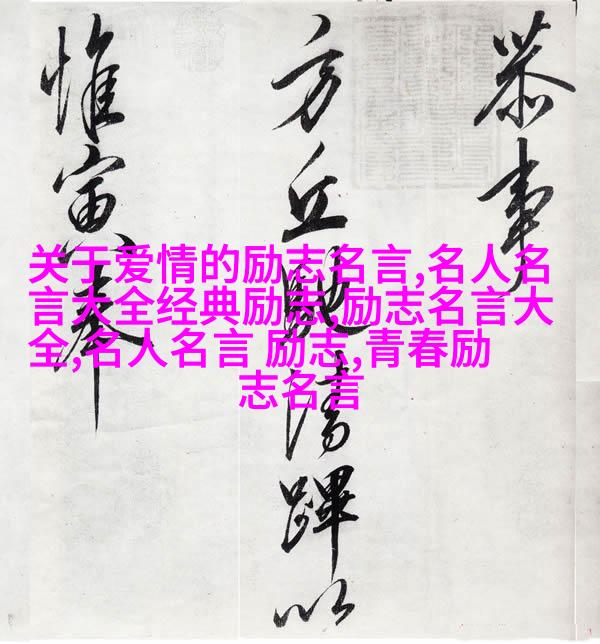 恭事
方丘清蹕以
惟寅奉
关于爱情的励志名言,名人名
言大全经典励志,励志名言大
全,名人名言 励志,青春励
志名言